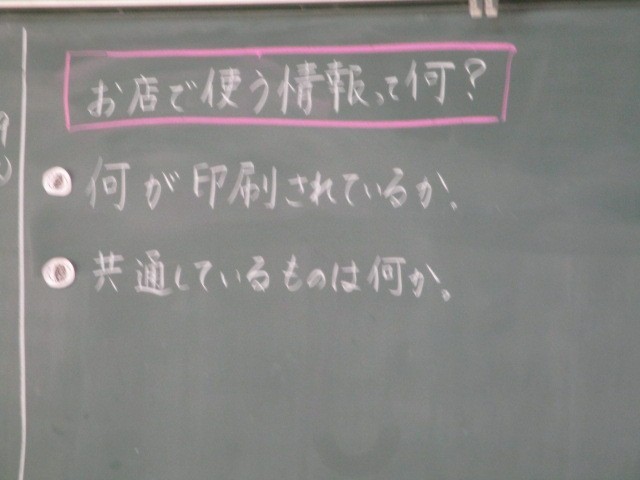 お店で使う情報って何?
何が印刷されているか。
共通しているものは何か。